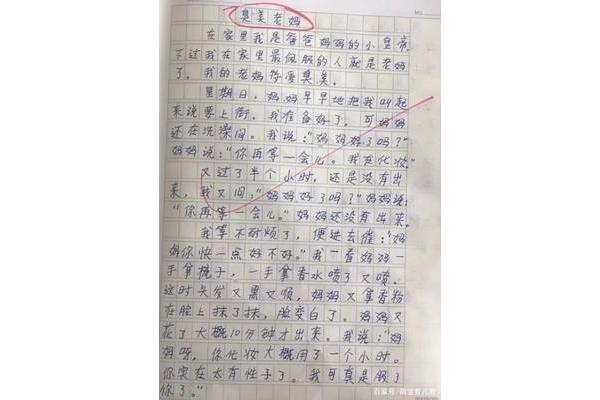 臭美老妈
在家里我是爸爸妈妈的小皇帝,
不过我在家里最佩服的人就是老妈
了。我的老妈特爱臭美。
星期日,妈妈早早地把我叫起
来说要上街。我准备好了,可妈妈
还在洗澡间。我说:“妈妈好了吗?”
妈妈说:“你再等一会儿。我在化妆。”
又过了半个小时,还是没有出
来,我又问:“妈妈好了吗?”妈妈说:
“你再等一会儿。”妈妈还没有出来。
我等不耐烦了,便进去催:“妈
妈你快一点好不好。”我一看妈妈一
手拿梳子,一手拿香水喷了又喷。
这时头发又黑又顺,妈妈又拿香粉
在脸上抹了抹,脸变白了。妈妈又
花了大概10分钟才出来。我说:“妈
妈呀,你化妆大概用了一个小时。
你实在太有性子了。我可真是服了
你了。”